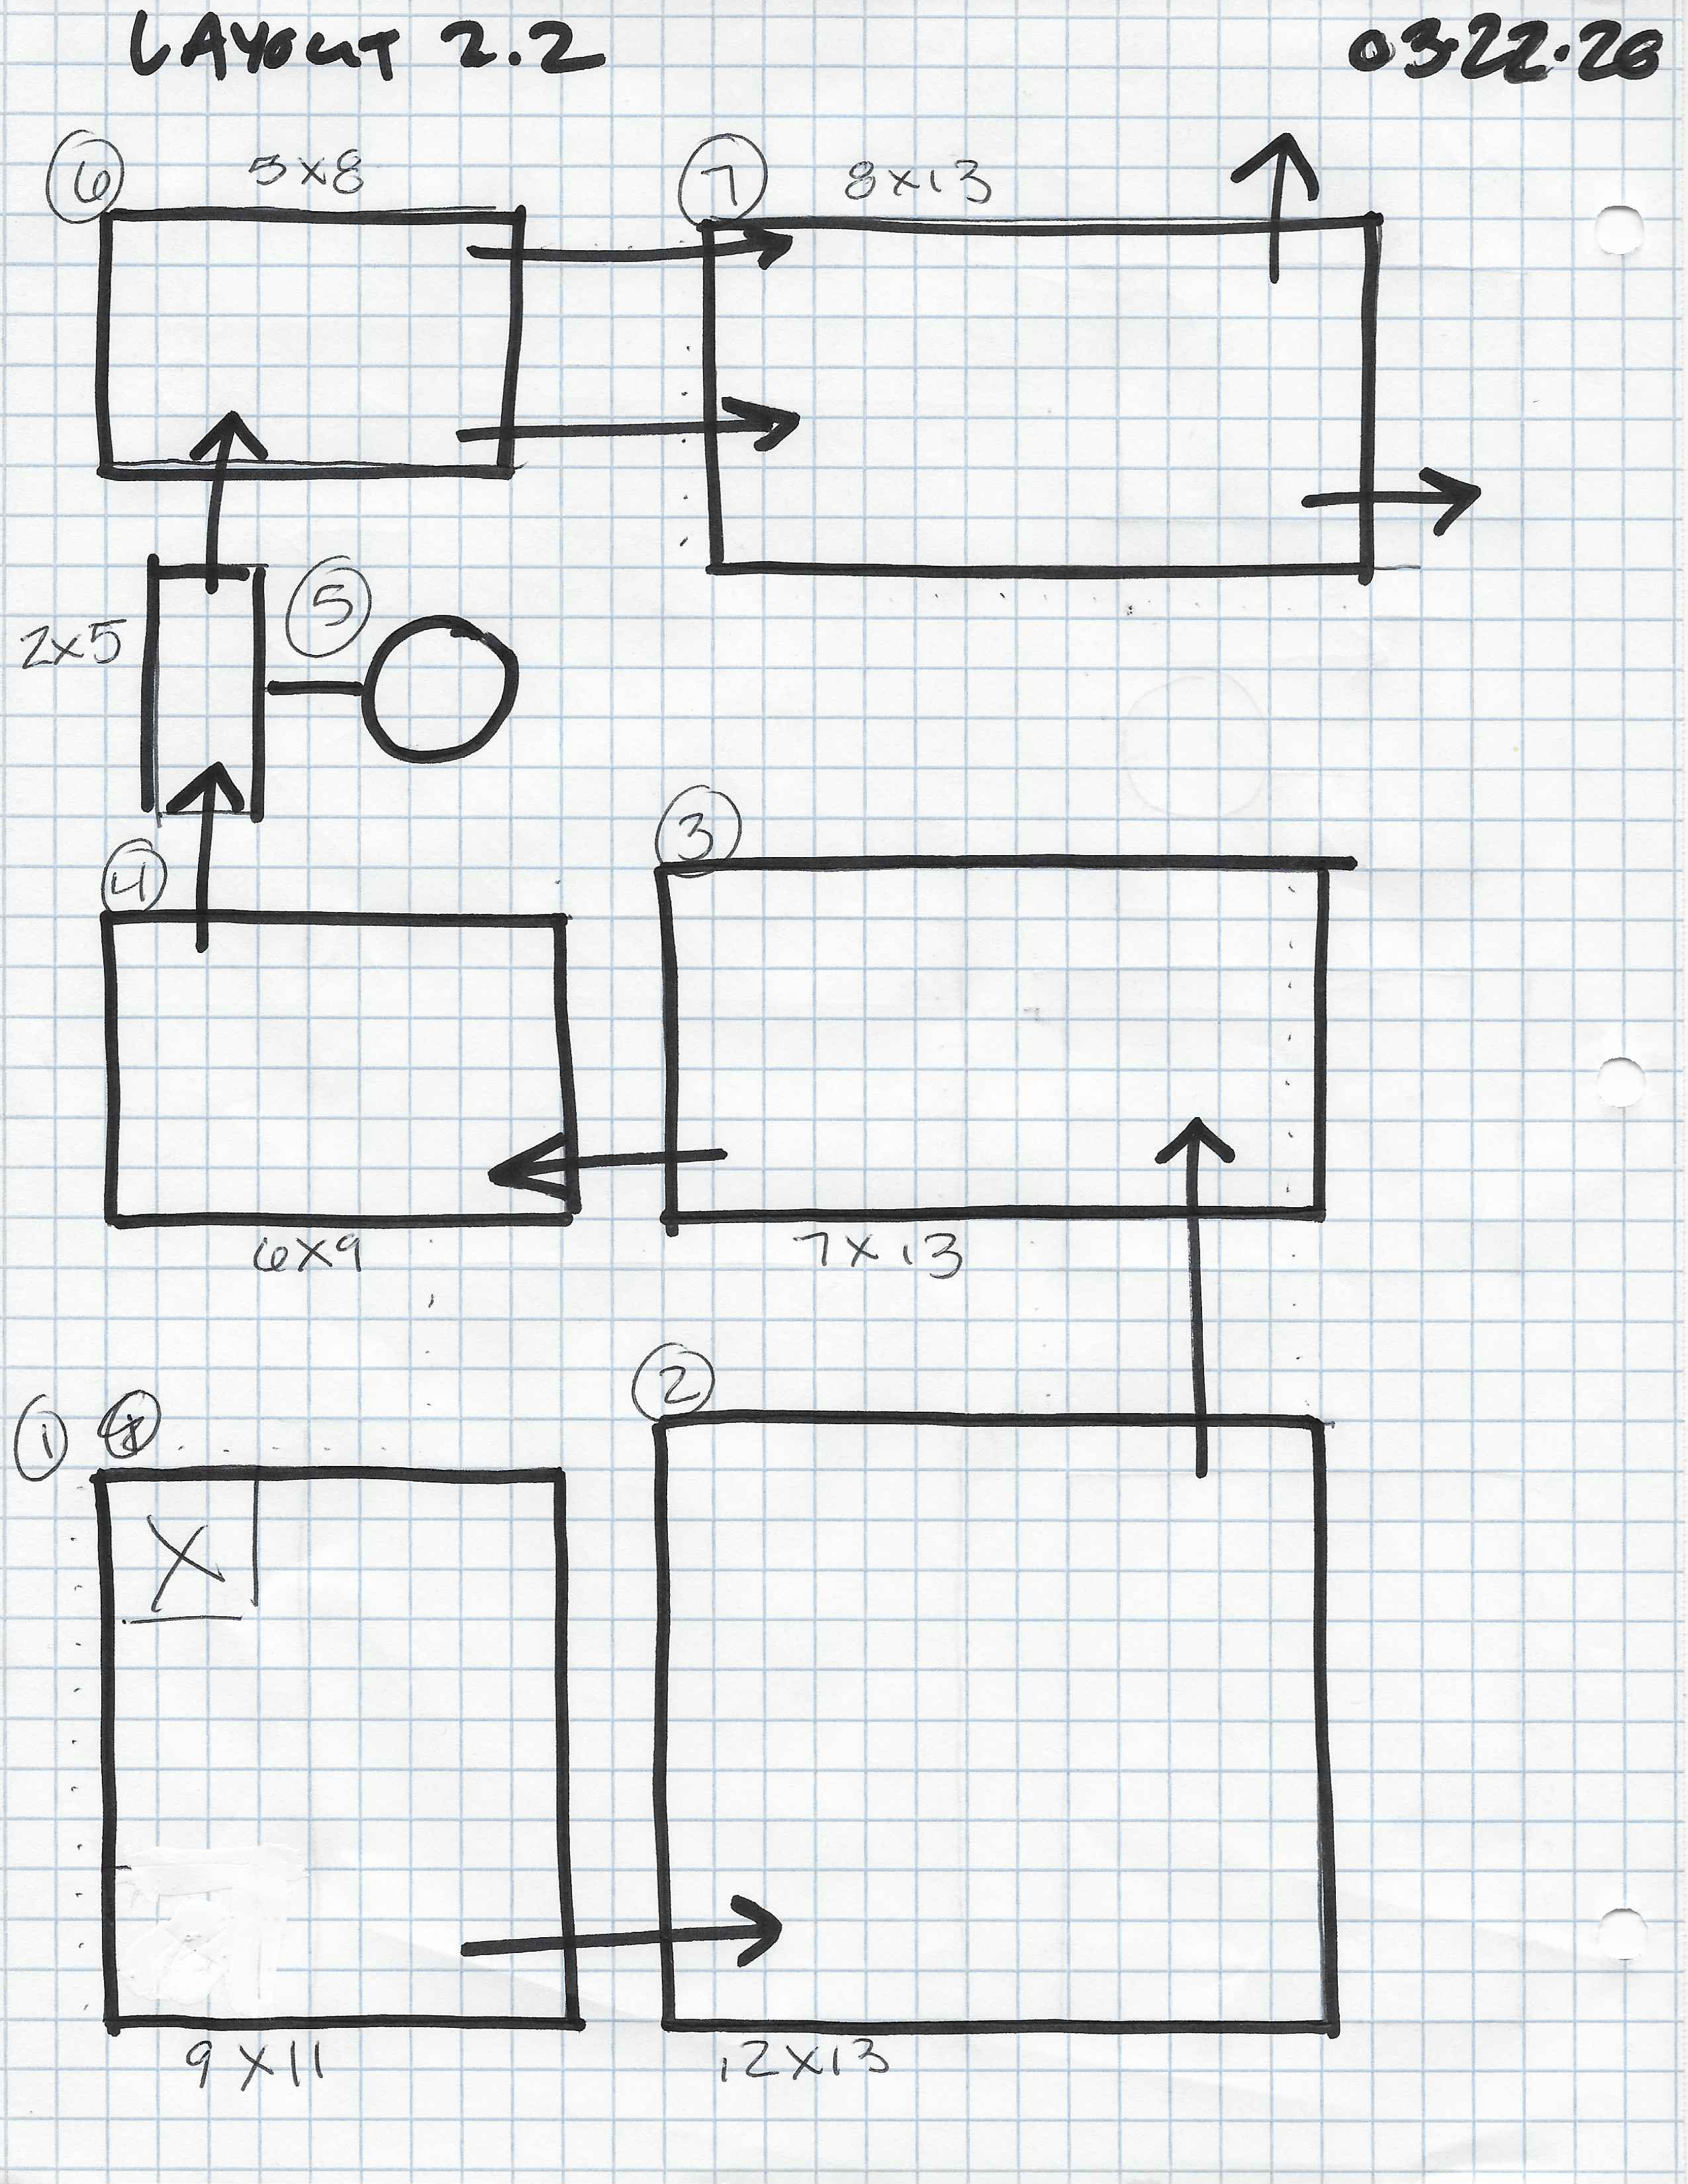 LAYOUT 2.2 03.22.20
6 5x8 7 8x13
2x5 5
3
4
6x9 7x13
2
1
X
9x11 12x13